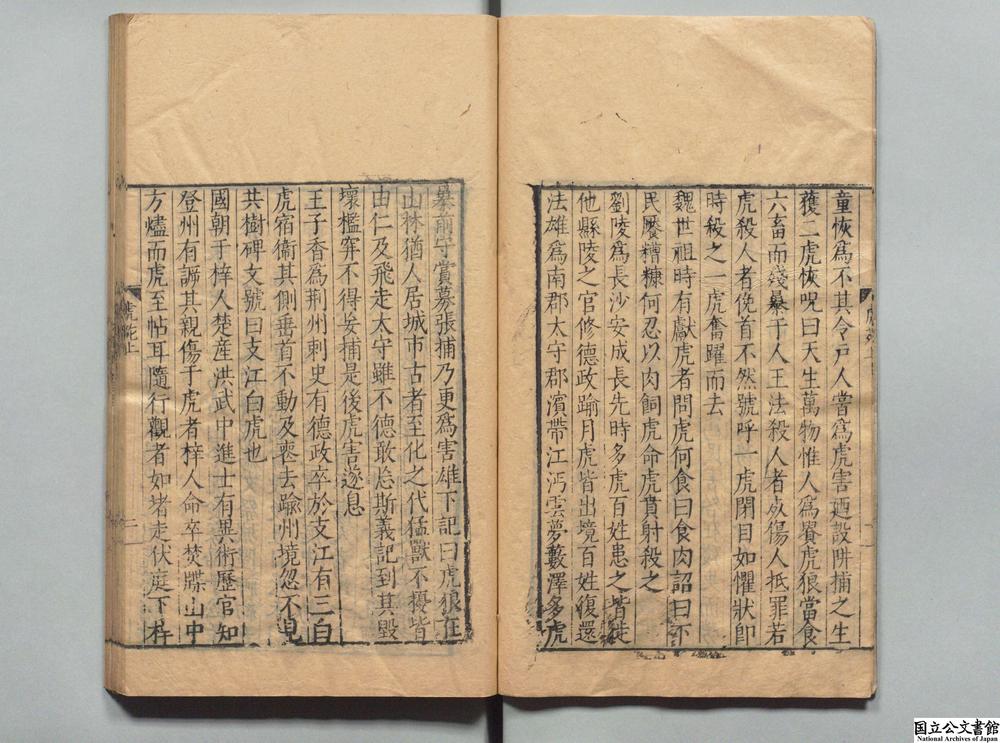 童恢爲不其令戸人嘗爲虎害廼設阱捕之生
獲二虎恢呪曰天生萬物惟人爲貴虎狼當食
六畜而殘暴于人王法殺人者死傷人抵罪若
虎殺人者俛首不然號呼一虎閉目如懼狀即
時殺之一虎奮躍而去
魏世祖時有獻虎者問虎何食曰食肉詔曰下
民饜糟糠何忍以肉飼虎命虎賁射殺之
劉陵爲長沙安成長先時多虎百姓患之皆徙
他縣陵之官修德政踰月虎皆出境百姓復還
法雄爲南郡太守郡濱帶江沔雲夢藪澤多虎
暴前守賞募張捕乃更爲害雄下記曰虎狼在
山林猶人居城市古者至化之代猛獸不擾皆
由仁及飛走太守雖不德敢忘斯義記到其毀
壞檻穽不得妄捕是後虎害遂息
王子香爲荆州刺史有德政卒於支江有三白
虎宿衞其側垂首不動及喪去踰州境忽不見
共樹碑文號曰支江白虎也
國朝于梓人楚産洪武中進士有異術歷官知
登州有訴其親傷于虎者梓人命卒焚牒山中
方燼而虎至帖耳隨行觀者如堵走伏庭下梓
国立公文書館
National Archives of Japan